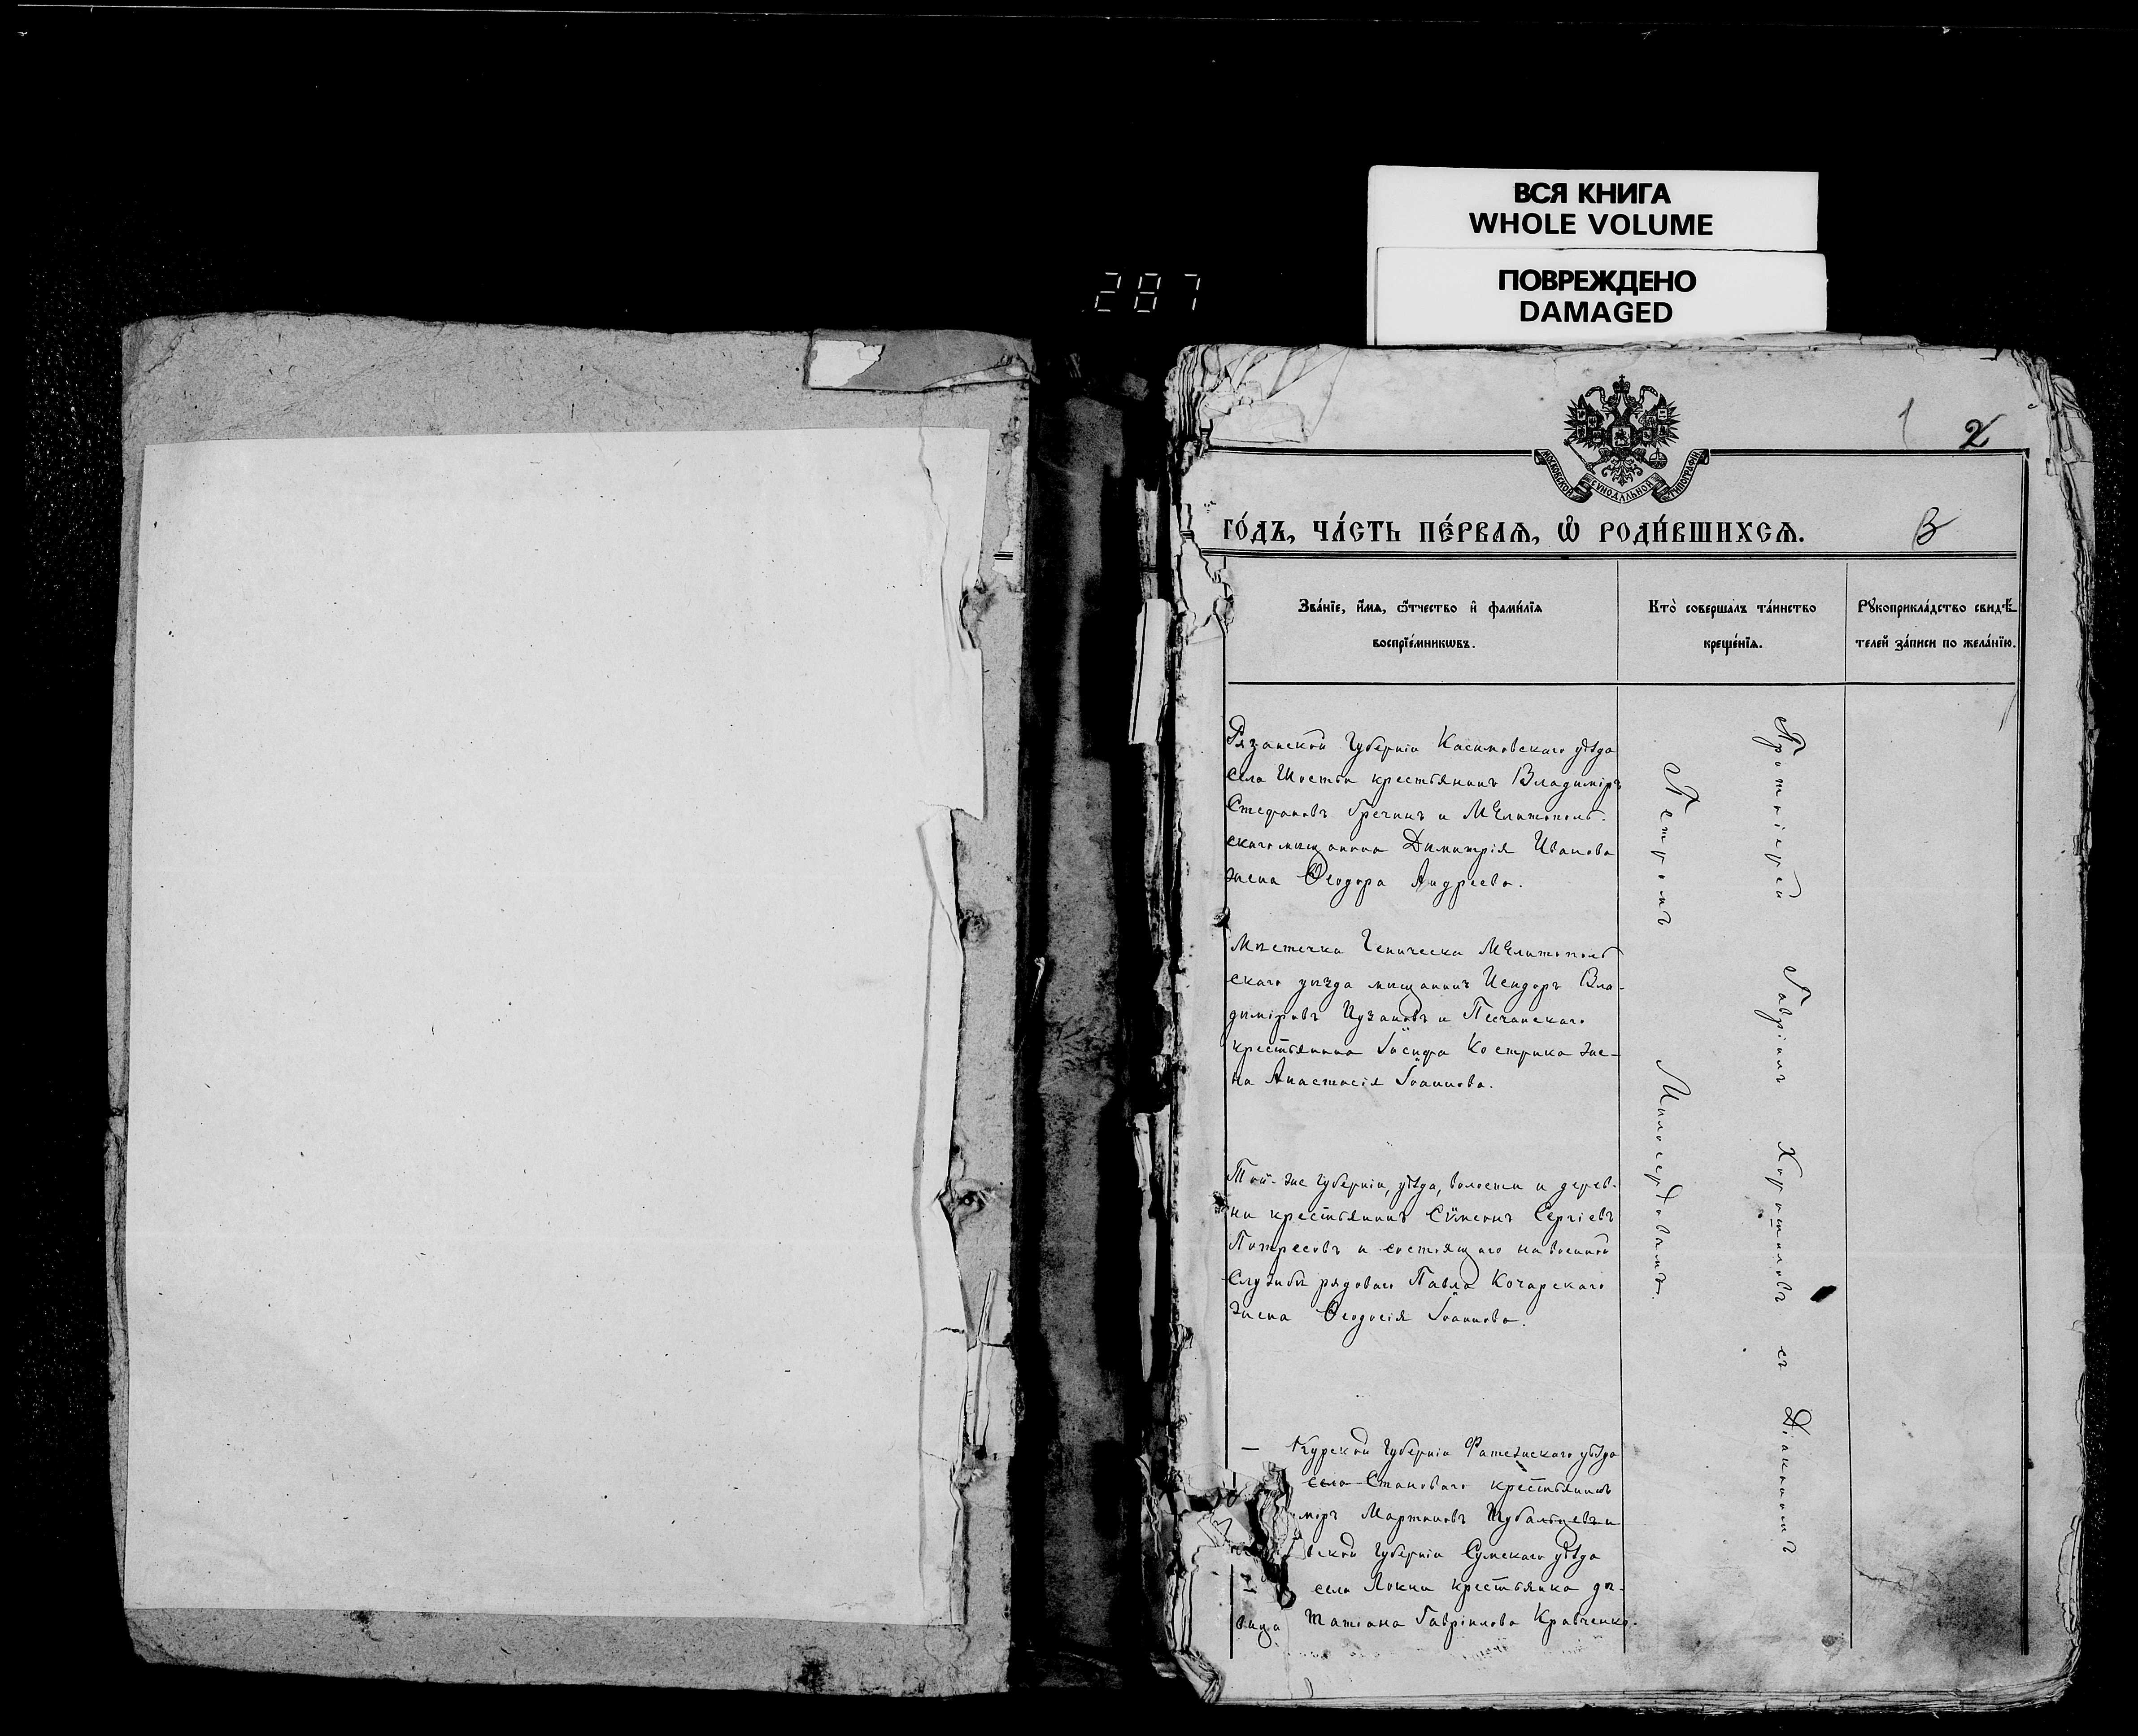 ВСЯ КНИГА
WHOLE VOLUME
ПОВРЕЖДЕНО
DAMAGED
287
1 2
МОСКОВСКОЙ СѴНОДАЛЬНОЙ ТИПОГРАФІИ
ГО́ДЪ, ЧА́СТЬ ПЕ́РВАѦ, Ѽ РОДИ́ВШИХСѦ.
Зва́нїе, и҆́мѧ, ѻ҆́тчество и҆ фами́лїѧ
воспрїе́мникѡвъ.
Кто̀ соверша́лъ та́инство
креще́нїѧ.
Рꙋкоприкла́дство свидѣ́-
телей за́писи по жела́нїю.
Рязанской Губерніи Касимовскаго уѣзда
села Шостьи крестьянинъ Владиміръ
Стефановъ Гречинъ и Мелитополь-
скаго мѣщанина Димитрія Иванова
жена Ѳеодора Андреева.
Мѣстечка Геническа Мелитополь
скаго уѣзда мѣщанинъ Исидоръ Вла-
диміровъ и Песчанскаго
крестьянина Іосифа Кострика же-
на Анастасія Іоаннова.
Той-же Губерніи, уѣзда, волости и дерев-
ни крестьянинъ Сѵмеонъ Сергіевъ
Потресовъ и состоящаго на военной
службѣ рядоваго Павла Кочарскаго
жена Ѳеодосія Іоаннова.
— Курской Губерніи Фатежскаго уѣзда
село Становаго крестьянинъ
міръ Мартиновъ и
вской Губерніи Сумскаго уѣзда
села Локни крестьянка дѣ-
вица Татіана Гавріилова Кравченко.
Протоіерей Гавріилъ Хорошиловъ съ Діакономъ
Петромъ Милосердовымъ.